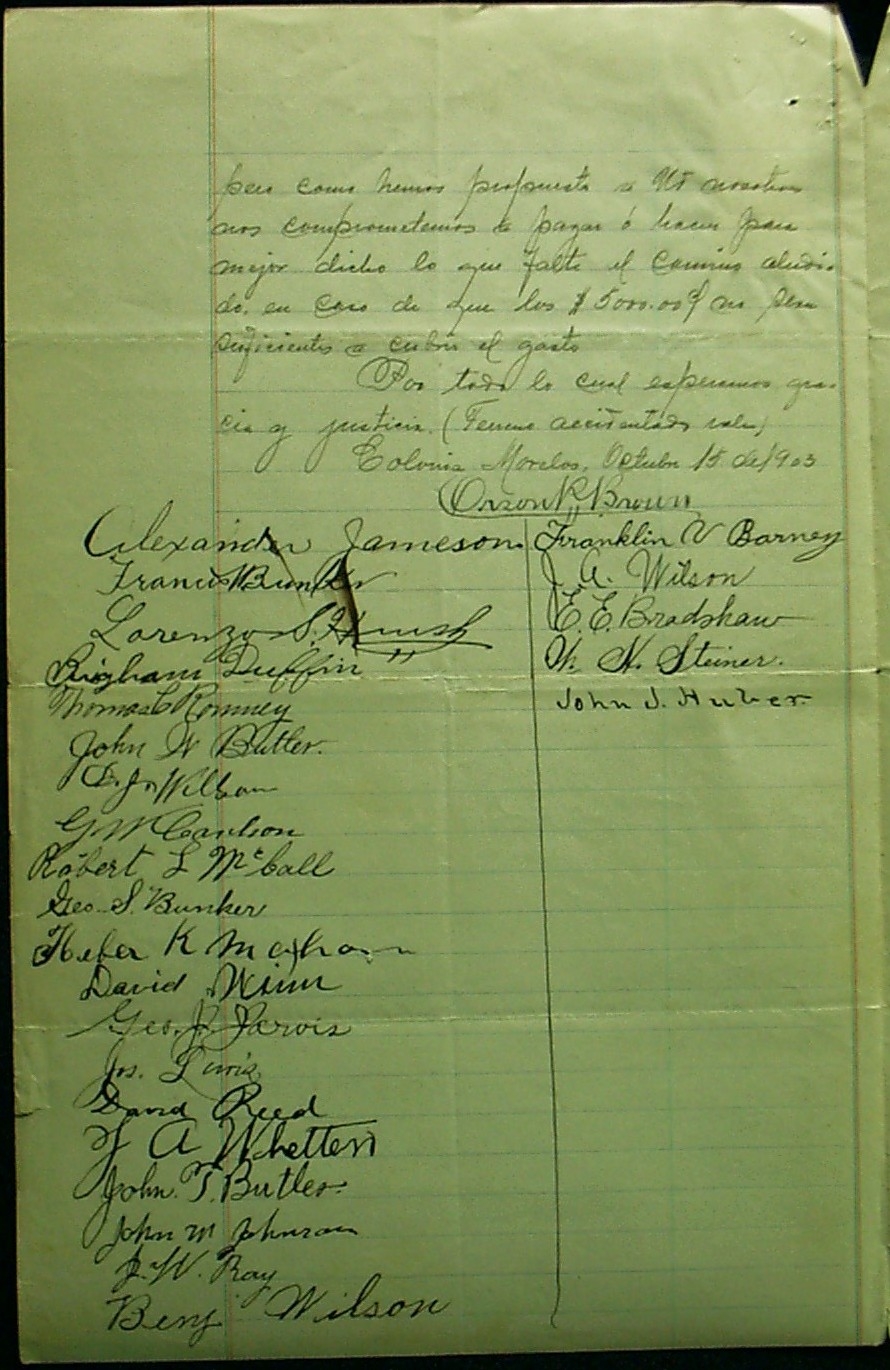 pero como hemos propuesto a Ud nosotros
nos comprometemos a pagar ó hacer para
mejor dicho lo que falte el camino aludi-
do, en caso de que los $5000.00 no sean
suficientes a cubrir el gasto
Por todo lo cual esperamos gra-
cia y justicia. (Terreno accidentado vale)
Colonia Morelos, Octubre 15 de 1903
Orson P. Brown
Alexander Jameson
Francis Bunker
Lorenzo S. Huish
Brigham Duffin
Thomas Romney
John W Butler.
D. J. Wilson
G W Carlson
Robert L McCall
Geo. S. Bunker
Heber K
David Winn
Geo. F. Jarvis
Jos. Lewis
David Reed
J A Whetten
John. T. Butler.
John M Johnson
J. W. Ray
Benj Wilson
Franklin V Barney
J. A. Wilson
E. E. Bradshaw
N. Steiner.
John J. Huber